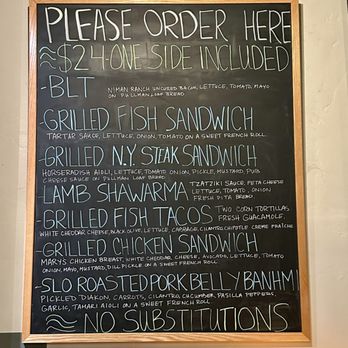 PLEASE ORDER HERE
≈$24-ONE SIDE INCLUDED
-BLT NIMAN RANCH UNCURED BACON, LETTUCE, TOMATO, MAYO
ON PULLMAN LOAF BREAD
-GRILLED FISH SANDWICH
TARTAR SAUCE, LETTUCE, ONION, TOMATO ON A SWEET FRENCH ROLL
-GRILLED N.Y. STEAK SANDWICH
HORSERADISH AIOLI, LETTUCE, TOMATO, ONION, PICKLE, MUSTARD, PUB
CHEESE SAUCE ON PULLMAN LOAF BREAD
-LAMB SHAWARMA TZATZIKI SAUCE, FETA CHEESE
LETTUCE, TOMATO, ONION
FRESH PITA BREAD
-GRILLED FISH TACOS TWO CORN TORTILLAS
FRESH GUACAMOLE,
WHITE CHEDDAR CHEESE, BLACK OLIVE, LETTUCE, CABBAGE, CILANTRO, CHIPOTLE CRÈME FRAÎCHE
-GRILLED CHICKEN SANDWICH
MARYS CHICKEN BREAST, WHITE CHEDDAR CHEESE, AVOCADO, LETTUCE, TOMATO
ONION, MAYO, MUSTARD, DILL PICKLE ON A SWEET FRENCH ROLL
-SLO ROASTED PORK BELLY BANH MI
PICKLED DIAKON, CARROTS, CILANTRO, CUCUMBER, PASILLA PEPPERS,
GARLIC, TAMARI AIOLI ON A SWEET FRENCH ROLL
≈ NO SUBSTITUTIONS